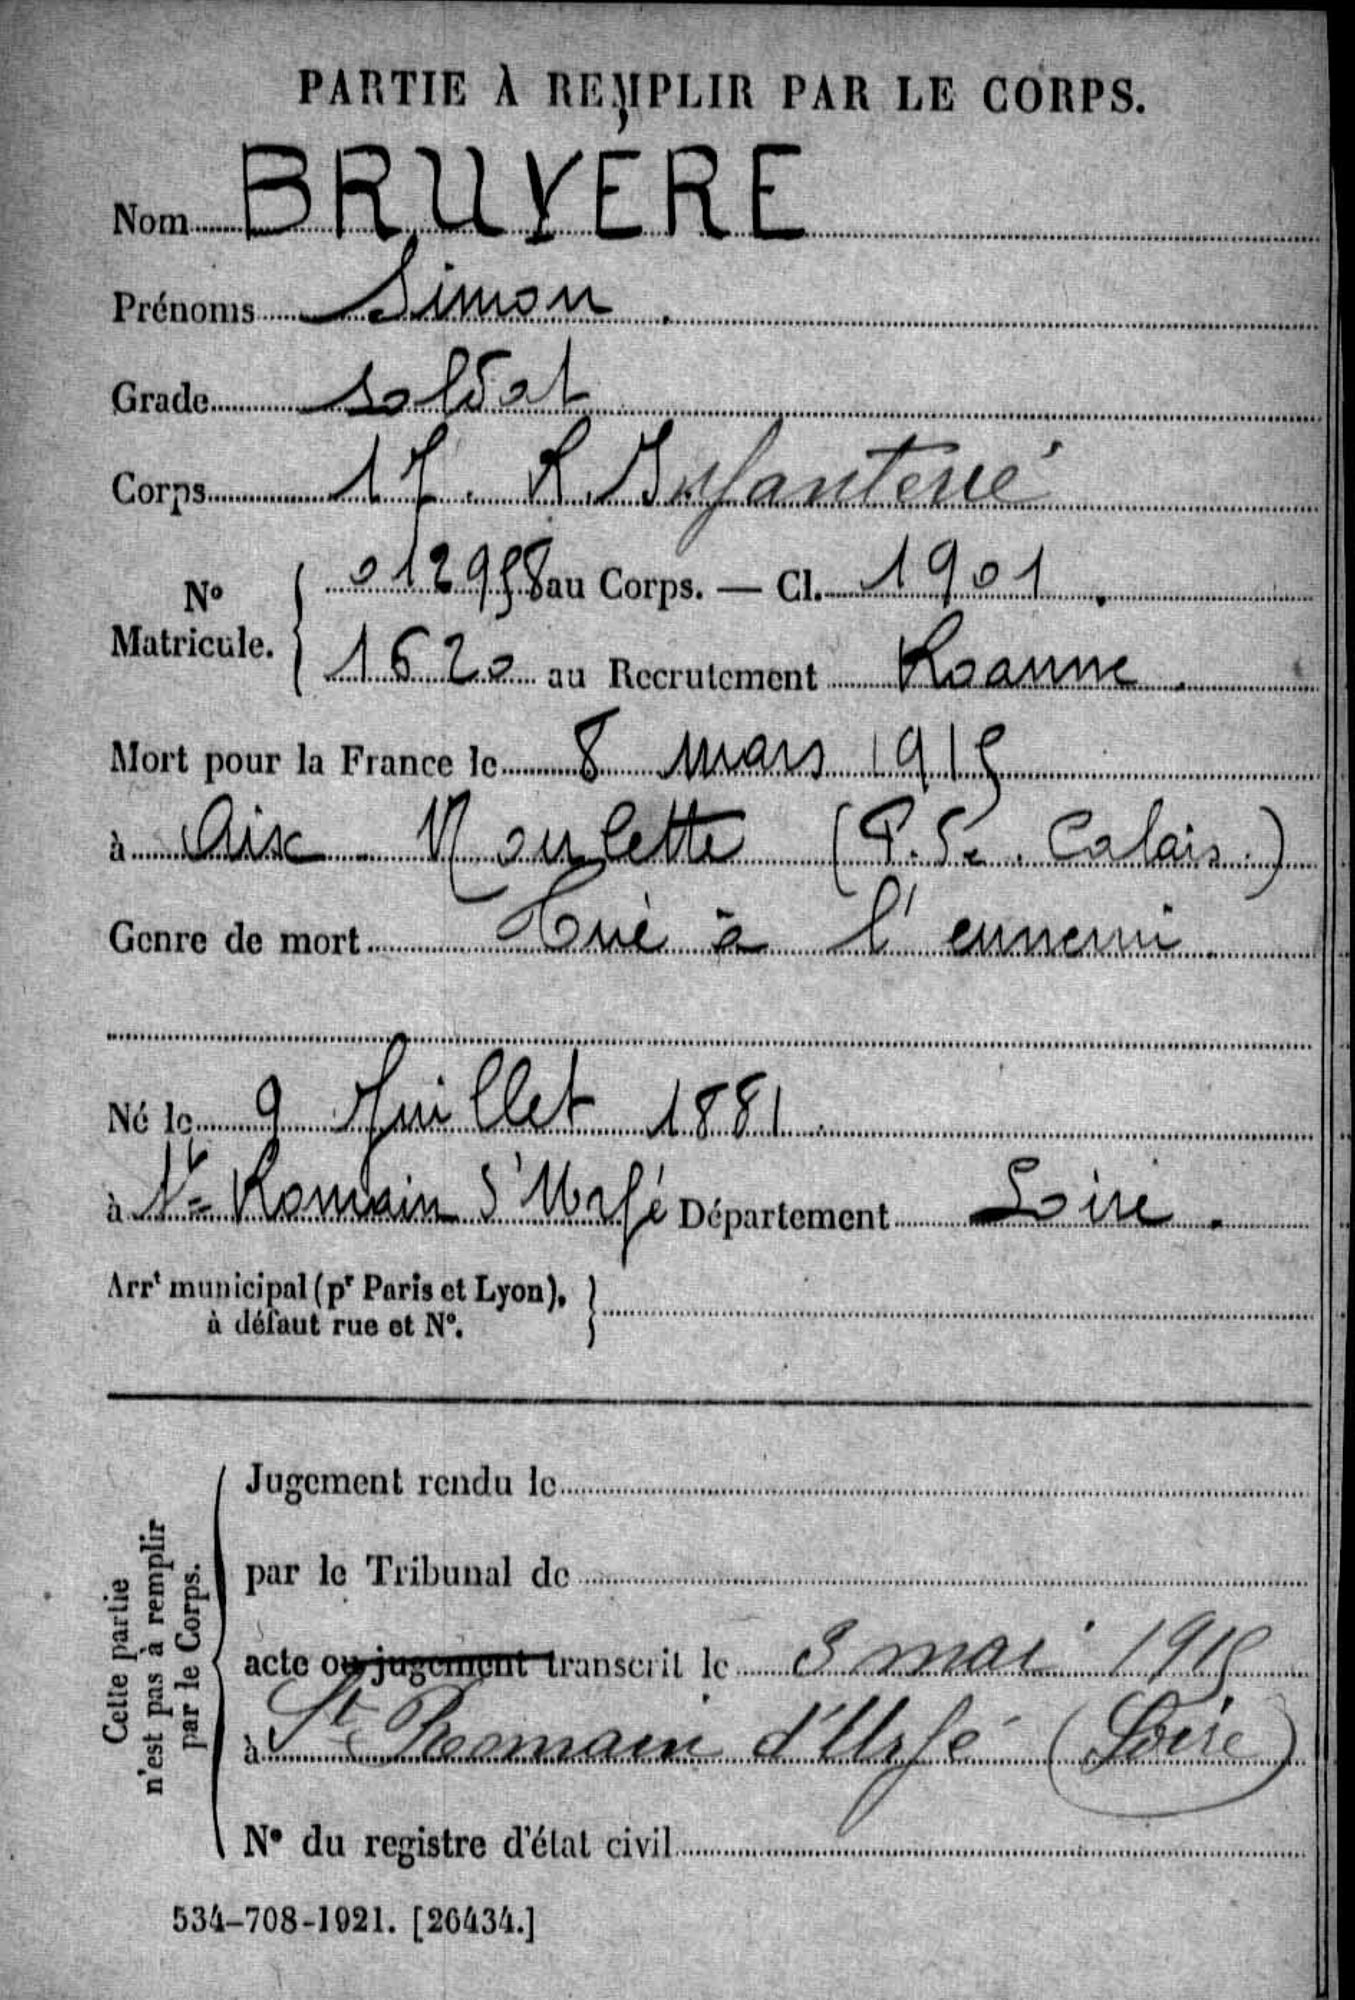 PARTIE À REMPLIR PAR LE CORPS.
Nom BRUYÈRE
Prénoms Simon.
Grade soldat
Corps 17. R. Infanterie
N° Matricule. { 012958 au Corps. — Cl. 1901.
1620 au Recrutement Roanne.
Mort pour la France le 8 mars 1915
à Aix Noulette (P. de. Calais.)
Genre de mort Tué à l'ennemi
Né le 9 Juillet 1881.
à St Romain d'Urfé Département Loire.
Arrt municipal (pr Paris et Lyon),
à défaut rue et N°. }
Cette partie
n'est pas à remplir
par le Corps.
Jugement rendu le
par le Tribunal de
acte ou jugement transcrit le 3 mai 1915
à St Romain d'Urfé (Loire)
N° du registre d'état civil
534-708-1921. [26434.]